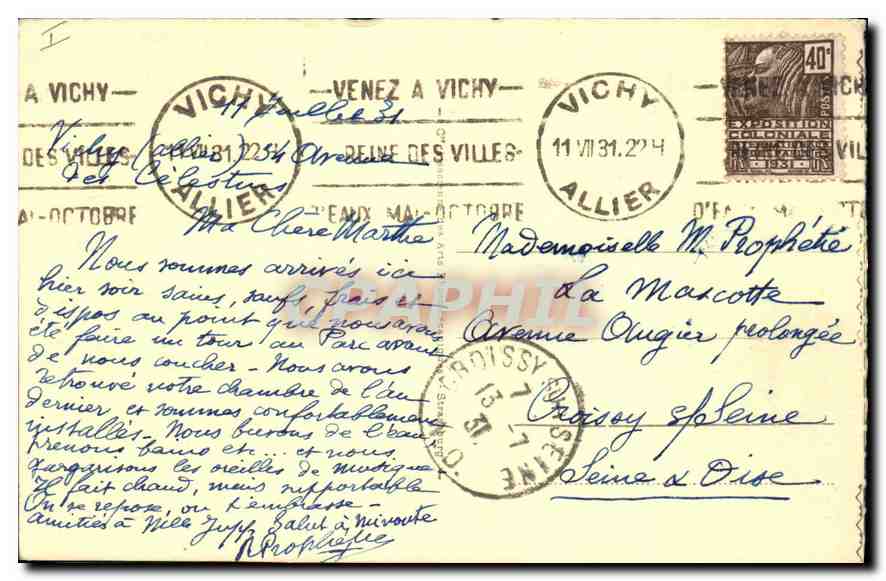 I
A VICHY
VENEZ A VICHY
VENEZ A VICHY
DES VILLES
REINE DES VILLES
REINE DES VIL
MAI-OCTOBRE
D'EAUX MAI-OCTOBRE
D'EAUX M
VICHY
11 VII 31. 22 H
ALLIER
VICHY
11 VII 31. 22 H
ALLIER
40c
POSTES
EXPOSITION
COLONIALE
11 Juillet 31
Vichy (Allier) 34 Avenue
des Célestins
Ma Chère Marthe
Nous sommes arrivés ici
hier soir sains, saufs, frais et
dispos au point que nous avons
été faire un tour au Parc avant
de nous coucher - Nous avons
retrouvé notre chambre de l'an
dernier et sommes confortablement
installés - Nous buvons de l'eau
prenons bains etc... et nous
gargarisons les oreilles de musique
Il fait chaud, mais supportable
On se repose, on t'embrasse -
amitiés à Mlle Salut à
Prophétie
Mademoiselle M. Prophétie
La Mascotte
Avenue Augier prolongée
Croissy s/Seine
Seine & Oise
CROISSY SUR SEINE
13 -7
31
CPAPHIL